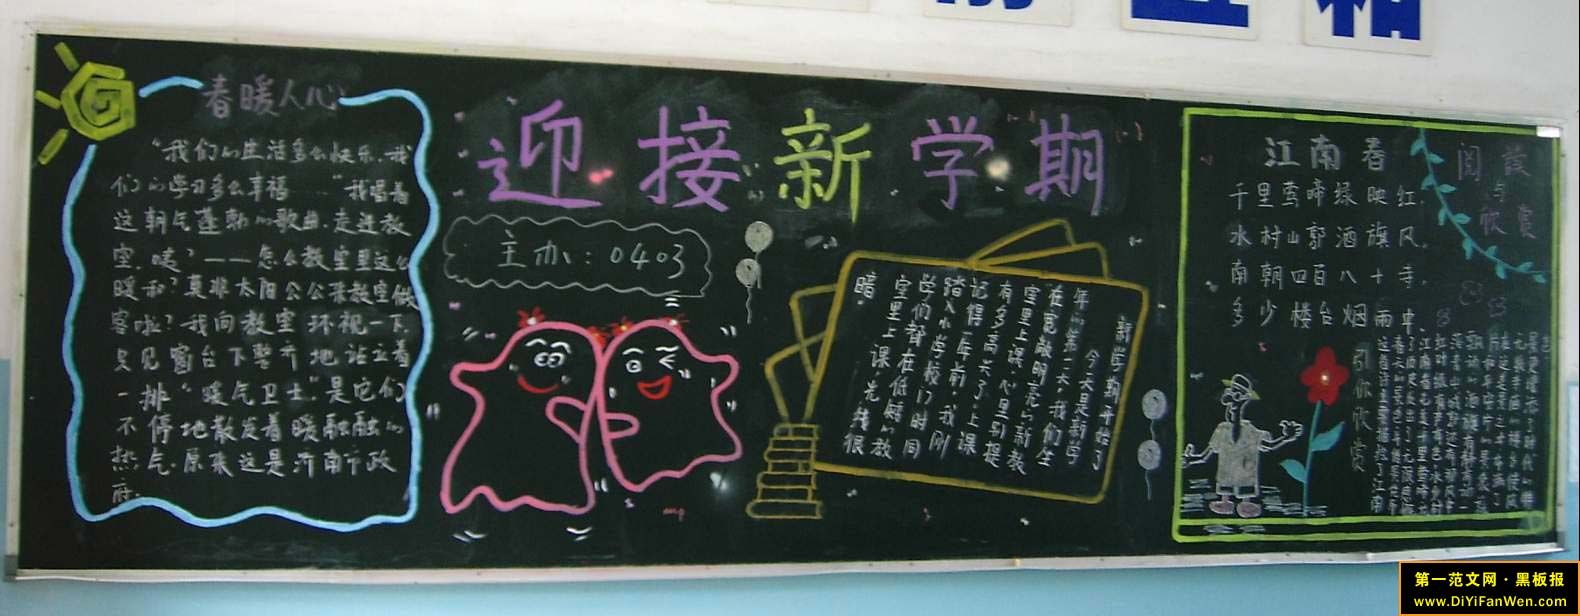 春暖人心
“我们的生活多么快乐,我
们的学习多么幸福……”我唱着
这朝气蓬勃的歌曲,走进教
室。咦?——怎么教室里这么
暖和?莫非太阳公公来教室做
客啦?我向教室环视一下,
只见窗台下整齐地站立着
一排“暖气卫士”。是它们
不停地散发着暖融融的
热气。原来这是济南市政
府
迎接新学期
主办:0403
新学期开始了
今天是新学
年的第一天,我们坐
在宽敞明亮的新教
室里上课,心里别提
有多高兴了。上课
记得一年前,我刚
踏入小学校门时同
学们都在低矮的教
室里上课,光线很
暗
阅读
与
欣赏
江南春
千里莺啼绿映红,
水村山郭酒旗风。
南朝四百八十寺,
多少楼台烟雨中。
引你欣赏
第一范文网·黑板报
www.DiYiFanWen.com